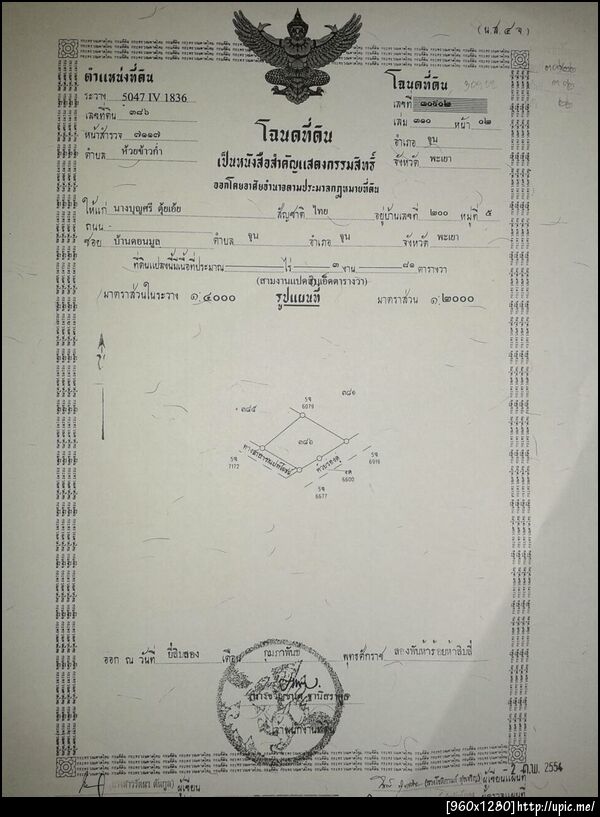 (น.ส.๔ จ)
ตำแหน่งที่ดิน
ระวาง 5047 IV 1836
เลขที่ดิน ๓๘๖
หน้าสำรวจ ๗๑๑๗
ตำบล ห้วยข้าวก่ำ
โฉนดที่ดิน
เลขที่ ๓๐๕๐๒
เล่ม ๓๑๐ หน้า ๐๒
อำเภอ จุน
จังหวัด พะเยา
โฉนดที่ดิน
เป็นหนังสือสำคัญแสดงกรรมสิทธิ์
ออกโดยอาศัยอำนาจตามประมวลกฎหมายที่ดิน
ให้แก่ นางบุญศรี ตุ้ยเอ้ย สัญชาติ ไทย อยู่บ้านเลขที่ ๒๐๐ หมู่ที่ ๕
ถนน -
ซอย บ้านดอนมูล ตำบล จุน อำเภอ จุน จังหวัด พะเยา
ที่ดินแปลงนี้มีเนื้อที่ประมาณ - ไร่ ๓ งาน ๘๑ ตารางวา
(สามงานแปดสิบเอ็ดตารางวา)
มาตราส่วนในระวาง ๑:๔๐๐๐ รูปแผนที่ มาตราส่วน ๑:๒๐๐๐
น
๓๘๕
รจ
6079
๓๘๑
๓๘๖
รจ
7172
ทางสาธารณประโยชน์
ห้วยร่องดู่
รจ
6916
งด
6600
รจ
6677
ออก ณ วันที่ ยี่สิบสอง เดือน กุมภาพันธ์ พุทธศักราช สองพันห้าร้อยห้าสิบสี่
เจ้าพนักงานที่ดิน
- 2 ก.พ. 2554
ผู้เขียน
ผู้เขียนแผนที่
[960x1280]http://upic.me/